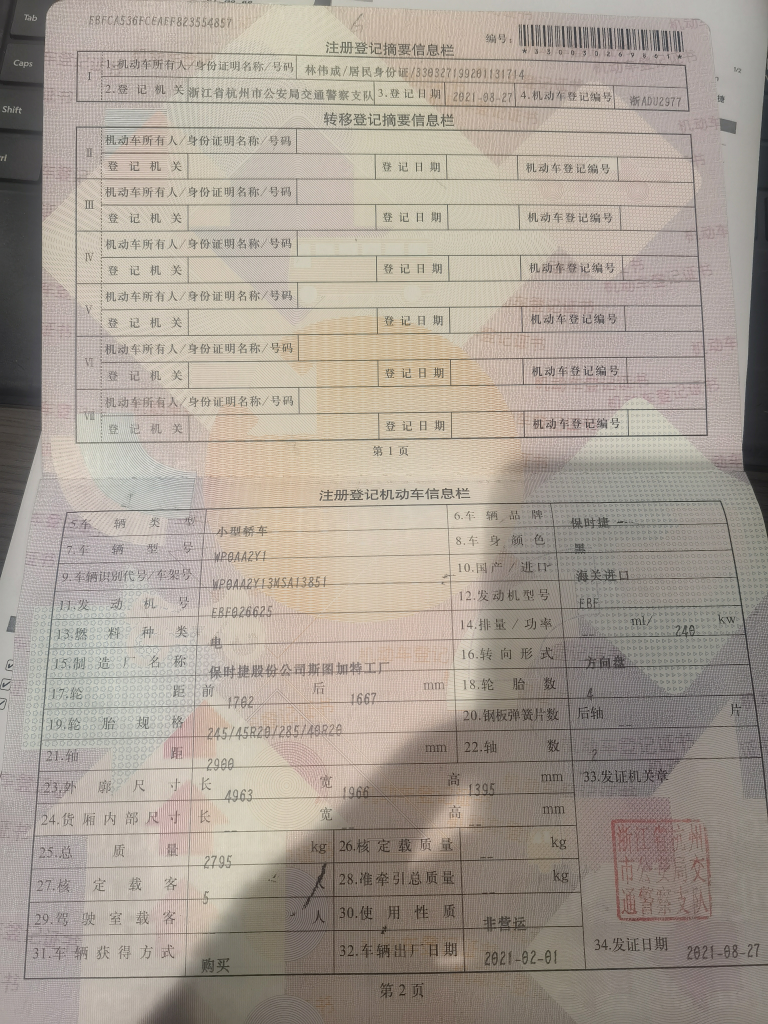 Tab
Caps
Shift
EBFCA536FCEAEF823554857
注册登记摘要信息栏
编号:
*330030269661*
I
1.机动车所有人/身份证明名称/号码 林伟成/居民身份证/330327199201131714
2.登记机关 浙江省杭州市公安局交通警察支队 3.登记日期 2021-08-27 4.机动车登记编号 浙ADU2977
转移登记摘要信息栏
II
机动车所有人/身份证明名称/号码
登记机关 登记日期 机动车登记编号
III
机动车所有人/身份证明名称/号码
登记机关 登记日期 机动车登记编号
IV
机动车所有人/身份证明名称/号码
登记机关 登记日期 机动车登记编号
V
机动车所有人/身份证明名称/号码
登记机关 登记日期 机动车登记编号
VI
机动车所有人/身份证明名称/号码
登记机关 登记日期 机动车登记编号
VII
机动车所有人/身份证明名称/号码
登记机关 登记日期 机动车登记编号
第1页
注册登记机动车信息栏
5.车辆类型 小型轿车 6.车辆品牌 保时捷 --
7.车辆型号 WP0AA2Y1 8.车身颜色 黑
9.车辆识别代号/车架号 WP0AA2Y13MSA13851 10.国产/进口 海关进口
11.发动机号 EBF026625 12.发动机型号 EBF
13.燃料种类 电 14.排量/功率 -- ml/ 240 kw
15.制造厂名称 保时捷股份公司斯图加特工厂 16.转向形式 方向盘
17.轮距 前 1702 后 1667 mm 18.轮胎数 4
19.轮胎规格 245/45R20/285/40R20 20.钢板弹簧片数 后轴 -- 片
21.轴距 2900 mm 22.轴数 2
23.外廓尺寸 长 4963 宽 1966 高 1395 mm 33.发证机关章
24.货厢内部尺寸 长 -- 宽 -- 高 -- mm
25.总质量 2795 kg 26.核定载质量 -- kg
27.核定载客 5 人 28.准牵引总质量 -- kg
29.驾驶室载客 -- 人 30.使用性质 非营运
浙江省杭州
市公安局交
通警察支队
31.车辆获得方式 购买 32.车辆出厂日期 2021-02-01 34.发证日期 2021-08-27
第2页